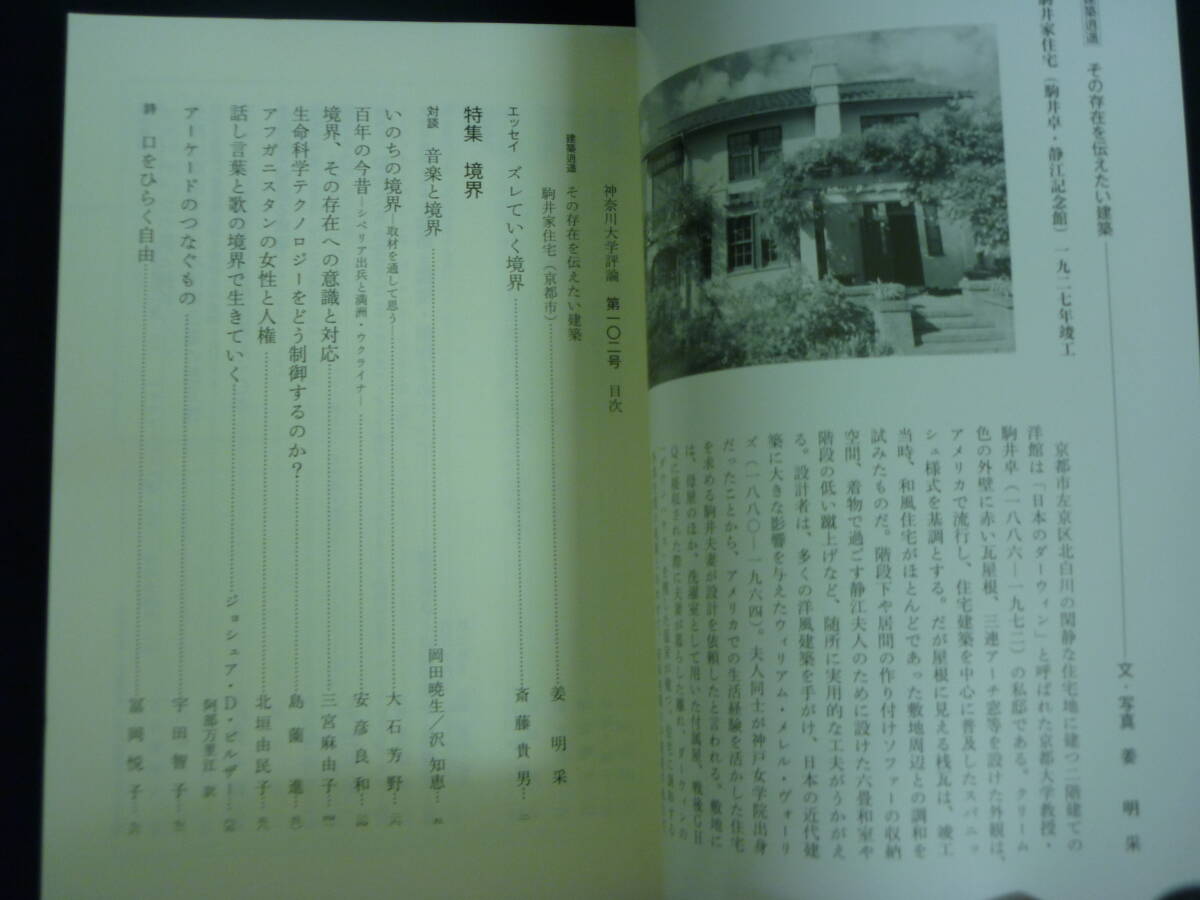 建築逍遥 その存在を伝えたい建築
駒井家住宅（駒井卓・静江記念館） 一九二七年竣工
文・写真 姜 明采
京都市左京区北白川の閑静な住宅地に建つ二階建ての
洋館は「日本のダーウィン」と呼ばれた京都大学教授・
駒井卓（一八八六―一九七二）の私邸である。クリーム
色の外壁に赤い瓦屋根、三連アーチ窓等を設けた外観は、
アメリカで流行し、住宅建築を中心に普及したスパニッ
シュ様式を基調とする。だが屋根に見える桟瓦は、竣工
当時、和風住宅がほとんどであった敷地周辺との調和を
試みたものだ。階段下や居間の作り付けソファーの収納
空間、着物で過ごす静江夫人のために設けた六畳和室や
階段の低い蹴上げなど、随所に実用的な工夫がうかがえ
る。設計者は、多くの洋風建築を手がけ、日本の近代建
築に大きな影響を与えたウィリアム・メレル・ヴォーリ
ズ（一八八〇―一九六四）。夫人同士が神戸女学院出身
だったことから、アメリカでの生活経験を活かした住宅
を求める駒井夫妻が設計を依頼したと言われる。敷地に
は、母屋のほか、洗濯室として用いた付属屋、戦後GH
Qに接収された際に夫妻が暮らした離れ、ダーウィンの
神奈川大学評論 第一〇二号 目次
建築逍遥 その存在を伝えたい建築
駒井家住宅（京都市）……姜 明采
エッセイ ズレていく境界……斎藤貴男…二
特集 境界
対談 音楽と境界……岡田暁生／沢 知恵…
いのちの境界―取材を通して思う……大石芳野…
百年の今昔―シベリア出兵と満洲・ウクライナ―……安彦良和…
境界、その存在への意識と対応……三宮麻由子…
生命科学テクノロジーをどう制御するのか？……島薗 進…
アフガニスタンの女性と人権……北垣由民子…
話し言葉と歌の境界で生きていく……ジョシュア・D・ピルザー…
阿部万里江 訳
アーケードのつなぐもの……宇田智子…
詩 口をひらく自由……冨岡悦子…